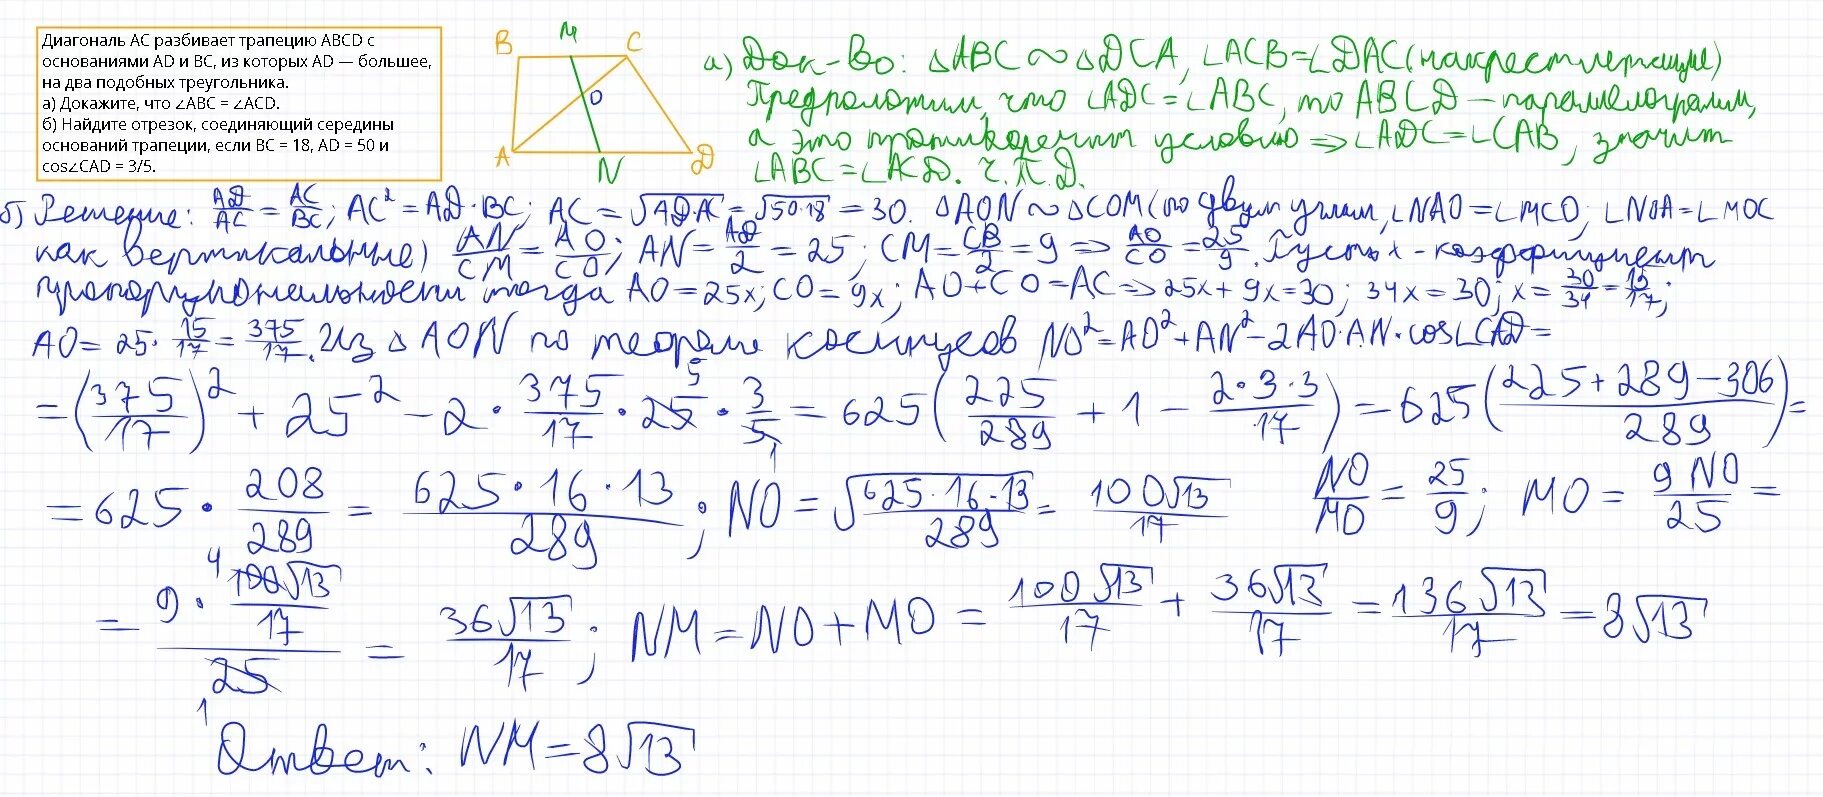 Диагональ AC разбивает трапецию ABCD с
основаниями AD и BC, из которых AD — большее,
на два подобных треугольника.
а) Докажите, что ∠ABC = ∠ACD.
б) Найдите отрезок, соединяющий середины
оснований трапеции, если BC = 18, AD = 50 и
cos∠CAD = 3/5.
B M C
O
A N D
а) Док-во: △ABC ∾ △DCA, ∠ACB=∠DAC (накрест лежащие)
Предположим, что ∠ADC=∠ABC, то ABCD – параллелограмм,
а это противоречит условию ⇒ ∠ADC=∠CAB, значит
∠ABC=∠ACD. Ч.Т.Д.
б) Решение: AD/AC = AC/BC; AC² = AD·BC; AC = √(AD·AC) = √(50·18) = 30. △AON ∾ △COM (по двум углам, ∠NAO=∠MCO; ∠NOA=∠MOC
как вертикальные) AN/CM = AO/CO; AN = AD/2 = 25; CM = CB/2 = 9 ⇒ AO/CO = 25/9. Пусть x - коэффициент
пропорциональности тогда AO=25x; CO=9x; AO+CO=AC ⇒ 25x+9x=30; 34x=30; x = 30/34 = 15/17;
AO = 25·15/17 = 375/17. Из △AON по теореме косинусов NO² = AO²+AN²−2AO·AN·cos∠CAD =
= (375/17)² + 25² − 2·375/17·25·3/5 = 625(225/289 + 1 − 2·3·3/17) = 625((225+289−306)/289) =
= 625·208/289 = 625·16·13/289; NO = √(625·16·13/289) = 100√13/17 NO/MO = 25/9; MO = 9NO/25 =
= (9·100√13/17)/25 = 36√13/17; NM = NO+MO = 100√13/17 + 36√13/17 = 136√13/17 = 8√13
Ответ: NM = 8√13